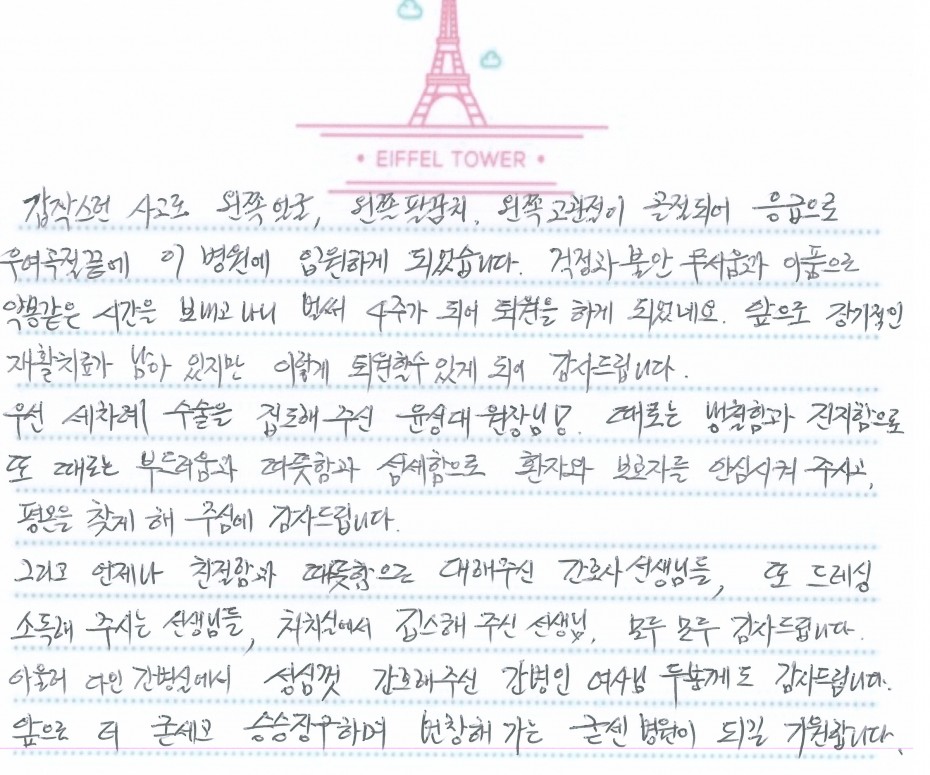 EIFFEL TOWER
갑작스런 사고로 왼쪽 얼굴, 왼쪽 팔꿈치, 왼쪽 고관절이 골절되어 응급으로
우여곡절끝에 이 병원에 입원하게 되었습니다. 걱정과 불안 무서움과 아픔으로
악몽같은 시간을 보내고 나니 벌써 4주가 되어 퇴원을 하게 되었네요. 앞으로 장기적인
재활치료가 남아 있지만 이렇게 퇴원할수 있게 되어 감사드립니다.
우선 세차례 수술을 집도해 주신 윤성대 원장님! 때로는 냉철함과 진지함으로
또 때로는 부드러움과 따뜻함과 섬세함으로 환자와 보호자를 안심시켜 주시고,
평온을 찾게 해 주심에 감사드립니다.
그리고 언제나 친절함과 따뜻함으로 대해주신 간호사 선생님들, 또 드레싱
소독해 주시는 선생님들, 처치실에서 깁스해 주신 선생님, 모두 모두 감사드립니다.
아울러 다인 간병실에서 성심껏 간호해주신 간병인 여사님 두분께도 감사드립니다.
앞으로 더 굳세고 승승장구하며 번창해 가는 굳센 병원이 되길 기원합니다.